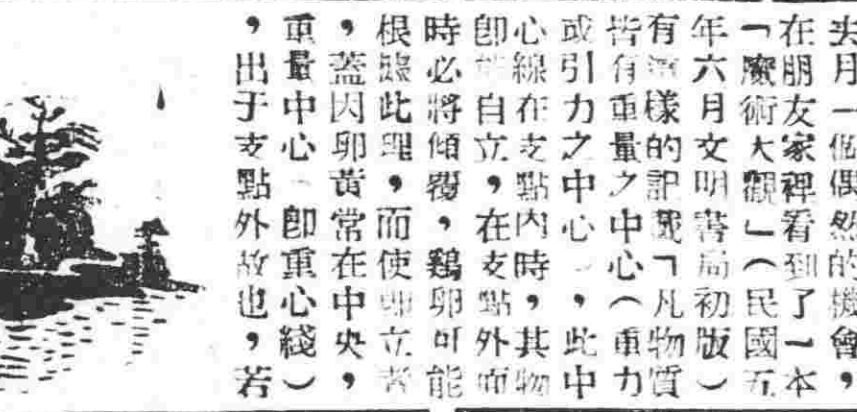 夫月一個偶然的機會，
在朋友家裡看到了一本
「魔術大觀」（民國五
年六月文明書局初版）
有這樣的記載「凡物質
皆有重量之中心（重力
或引力之中心），此中
心線在支點內時，其物
卽能自立，在支點外而
時必將傾覆，鷄卵可能
根據此理，而使卵立者
，蓋因卵黃常在中央，
重量中心（卽重心綫）
，出于支點外故也，若